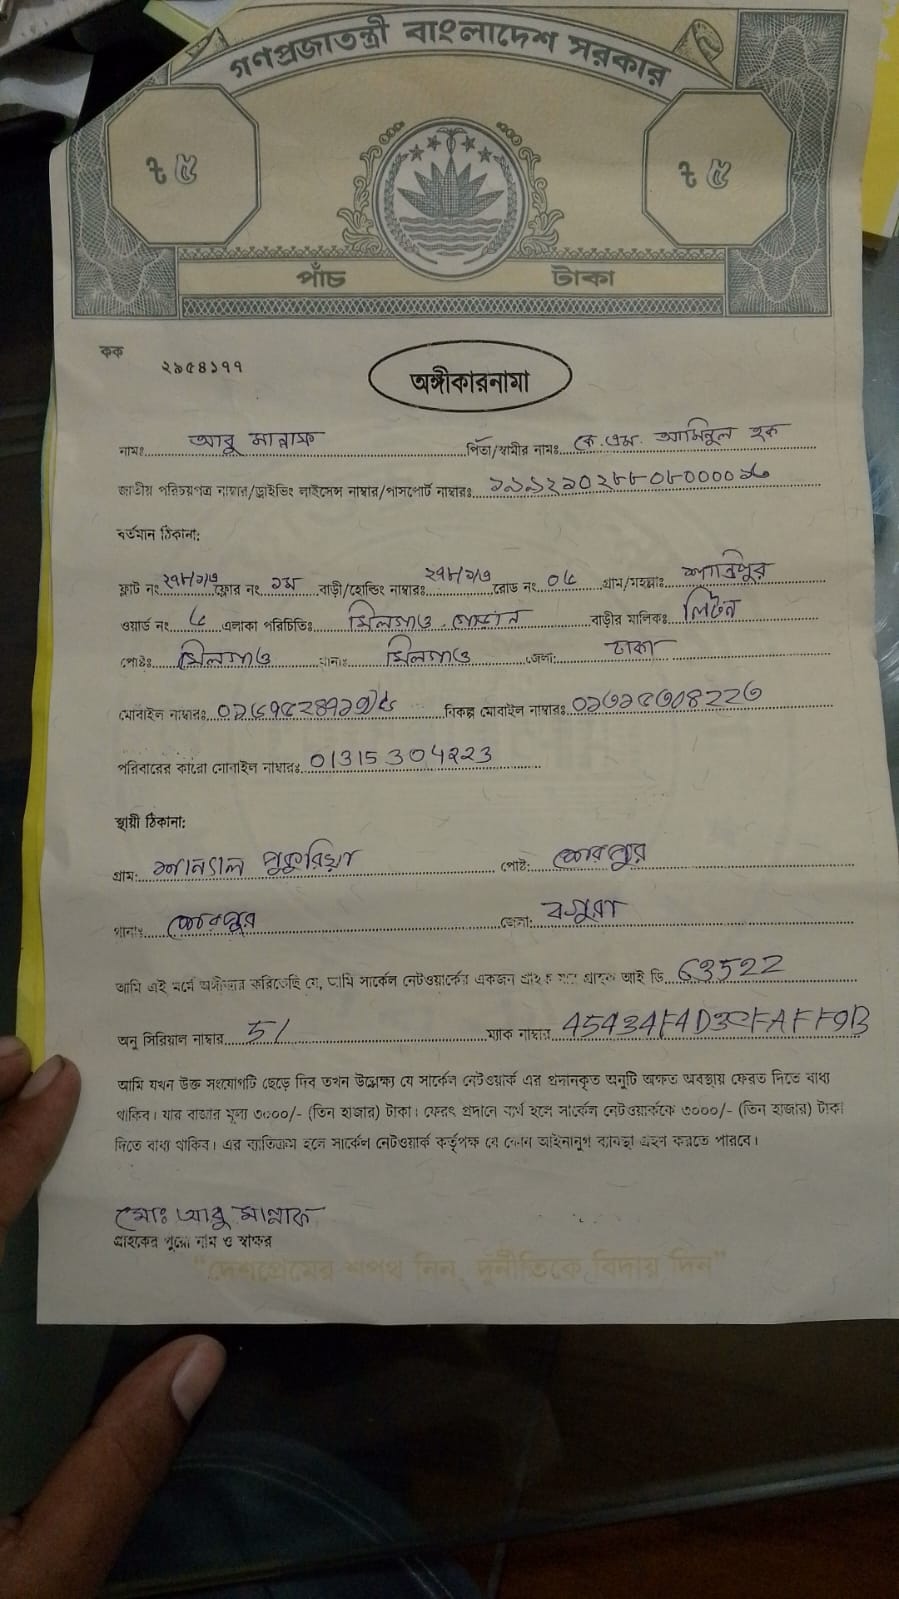 গণপ্রজাতন্ত্রী বাংলাদেশ সরকার
৳ ৫ ৳ ৫
পাঁচ টাকা
কক ২৯৫৪১৭৭
অঙ্গীকারনামা
নামঃ আবু মান্নাফ পিতা/স্বামীর নামঃ কে.এম. আমিনুল হক
জাতীয় পরিচয়পত্র নাম্বার/ড্রাইভিং লাইসেন্স নাম্বার/পাসপোর্ট নাম্বারঃ
বর্তমান ঠিকানা:
ফ্লাট নং ফ্লোর নং ১ম বাড়ী/হোল্ডিং নাম্বারঃ রোড নং গ্রাম/মহল্লাঃ শান্তিপুর
ওয়ার্ড নং এলাকা পরিচিতিঃ খিলগাও গোড়ান বাড়ীর মালিকঃ লিটন
পোষ্টঃ খিলগাও থানাঃ খিলগাও জেলা: ঢাকা
মোবাইল নাম্বারঃ বিকল্প মোবাইল নাম্বারঃ
পরিবারের কারো মোবাইল নাম্বারঃ
স্থায়ী ঠিকানা:
গ্রাম: পোষ্ট: শেরপুর
থানাঃ শেরপুর জেলা: বগুরা
আমি এই মর্মে অঙ্গীকার করিতেছি যে, আমি সার্কেল নেটওয়ার্কের একজন গ্রাহক যার গ্রাহক আই ডি 63522
অনু সিরিয়াল নাম্বার 51 ম্যাক নাম্বার
আমি যখন উক্ত সংযোগটি ছেড়ে দিব তখন উল্লেক্ষ্য যে সার্কেল নেটওয়ার্ক এর প্রদানকৃত অনুটি অক্ষত অবস্থায় ফেরত দিতে বাধ্য
থাকিব। যার বাজার মূল্য ৩০০০/- (তিন হাজার) টাকা। ফেরৎ প্রদানে ব্যর্থ হলে সার্কেল নেটওয়ার্ককে ৩০০০/- (তিন হাজার) টাকা
দিতে বাধ্য থাকিব। এর ব্যতিক্রম হলে সার্কেল নেটওয়ার্ক কর্তৃপক্ষ যে কোন আইনানুগ ব্যবস্থা গ্রহণ করতে পারবে।
মোঃ আবু মান্নাফ
গ্রাহকের পুরো নাম ও স্বাক্ষর
“দেশপ্রেমের শপথ নিন, দুর্নীতিকে বিদায় দিন”